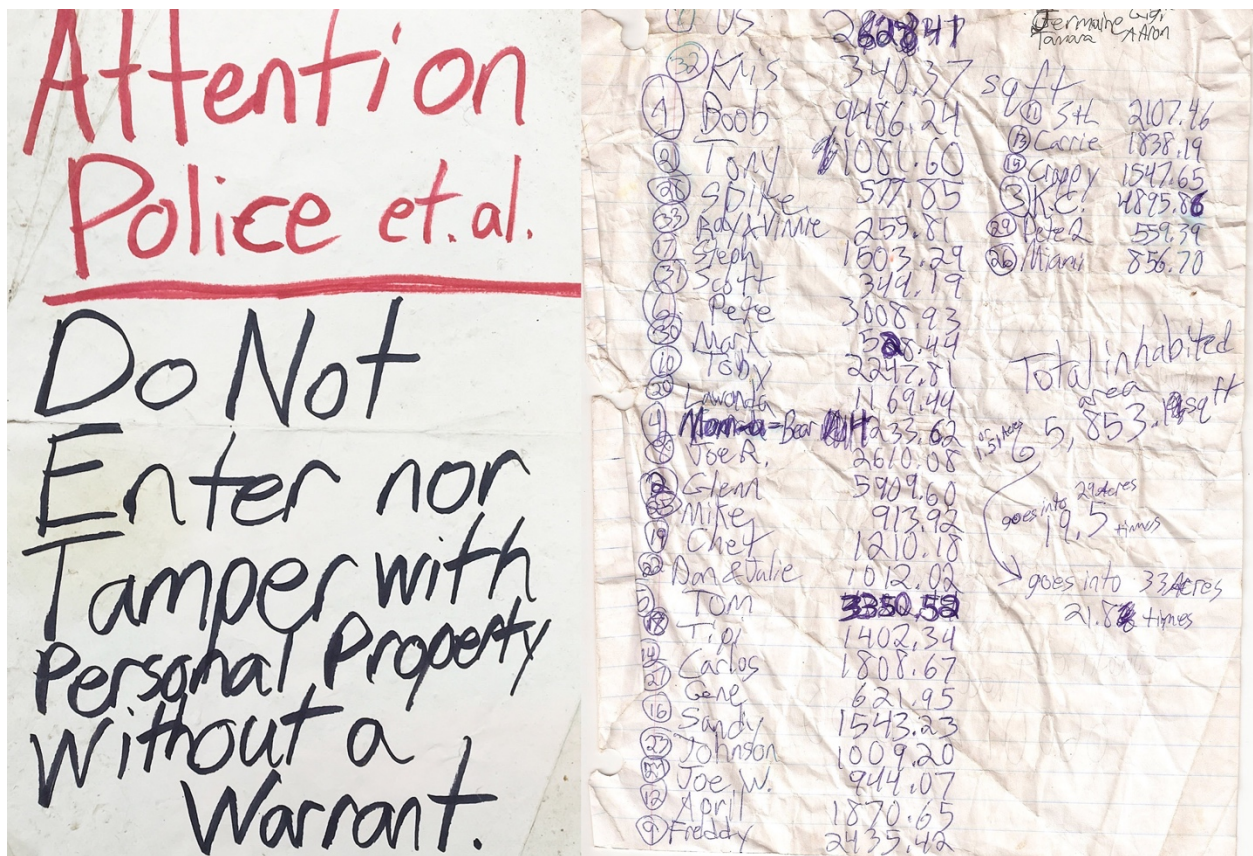 Attention
Police et. al.
Do Not
Enter nor
Tamper with
Personal Property
Without a
Warrant.
Us
Kris 340.37
1 Boob 9486.24
Tony 1081.60
28 Spike 577.85
33 Roby & Vinnie 255.81
17 Steph 1503.29
31 Scott 349.19
Pete 3008.93
30 Mark
10 Toby 2247.81
20 Lawonda 1169.44
Mom-a-Bear
Joe R. 2610.08
2 Glenn 5909.60
25 Mike 913.92
19 Chet 1210.18
22 Dan & Julie 1012.02
5 Tom 3350.58
Tipi 1402.34
14 Carlos 1808.67
27 Gene 621.95
16 Sandy 1543.23
23 Johnson 1009.20
Joe W. 944.07
12 April 1870.65
9 Freddy 2435.42
Jermaine
Tamara Aaron
sq ft
11 2107.46
13 Carrie 1838.19
15 1547.65
3 K.C. 4895.86
29 Pete 2 559.39
26 Miami 856.70
Total inhabited
area
65,853. sq ft
goes into 29 Acres
19.5 times
goes into 33 Acres
21.8 times